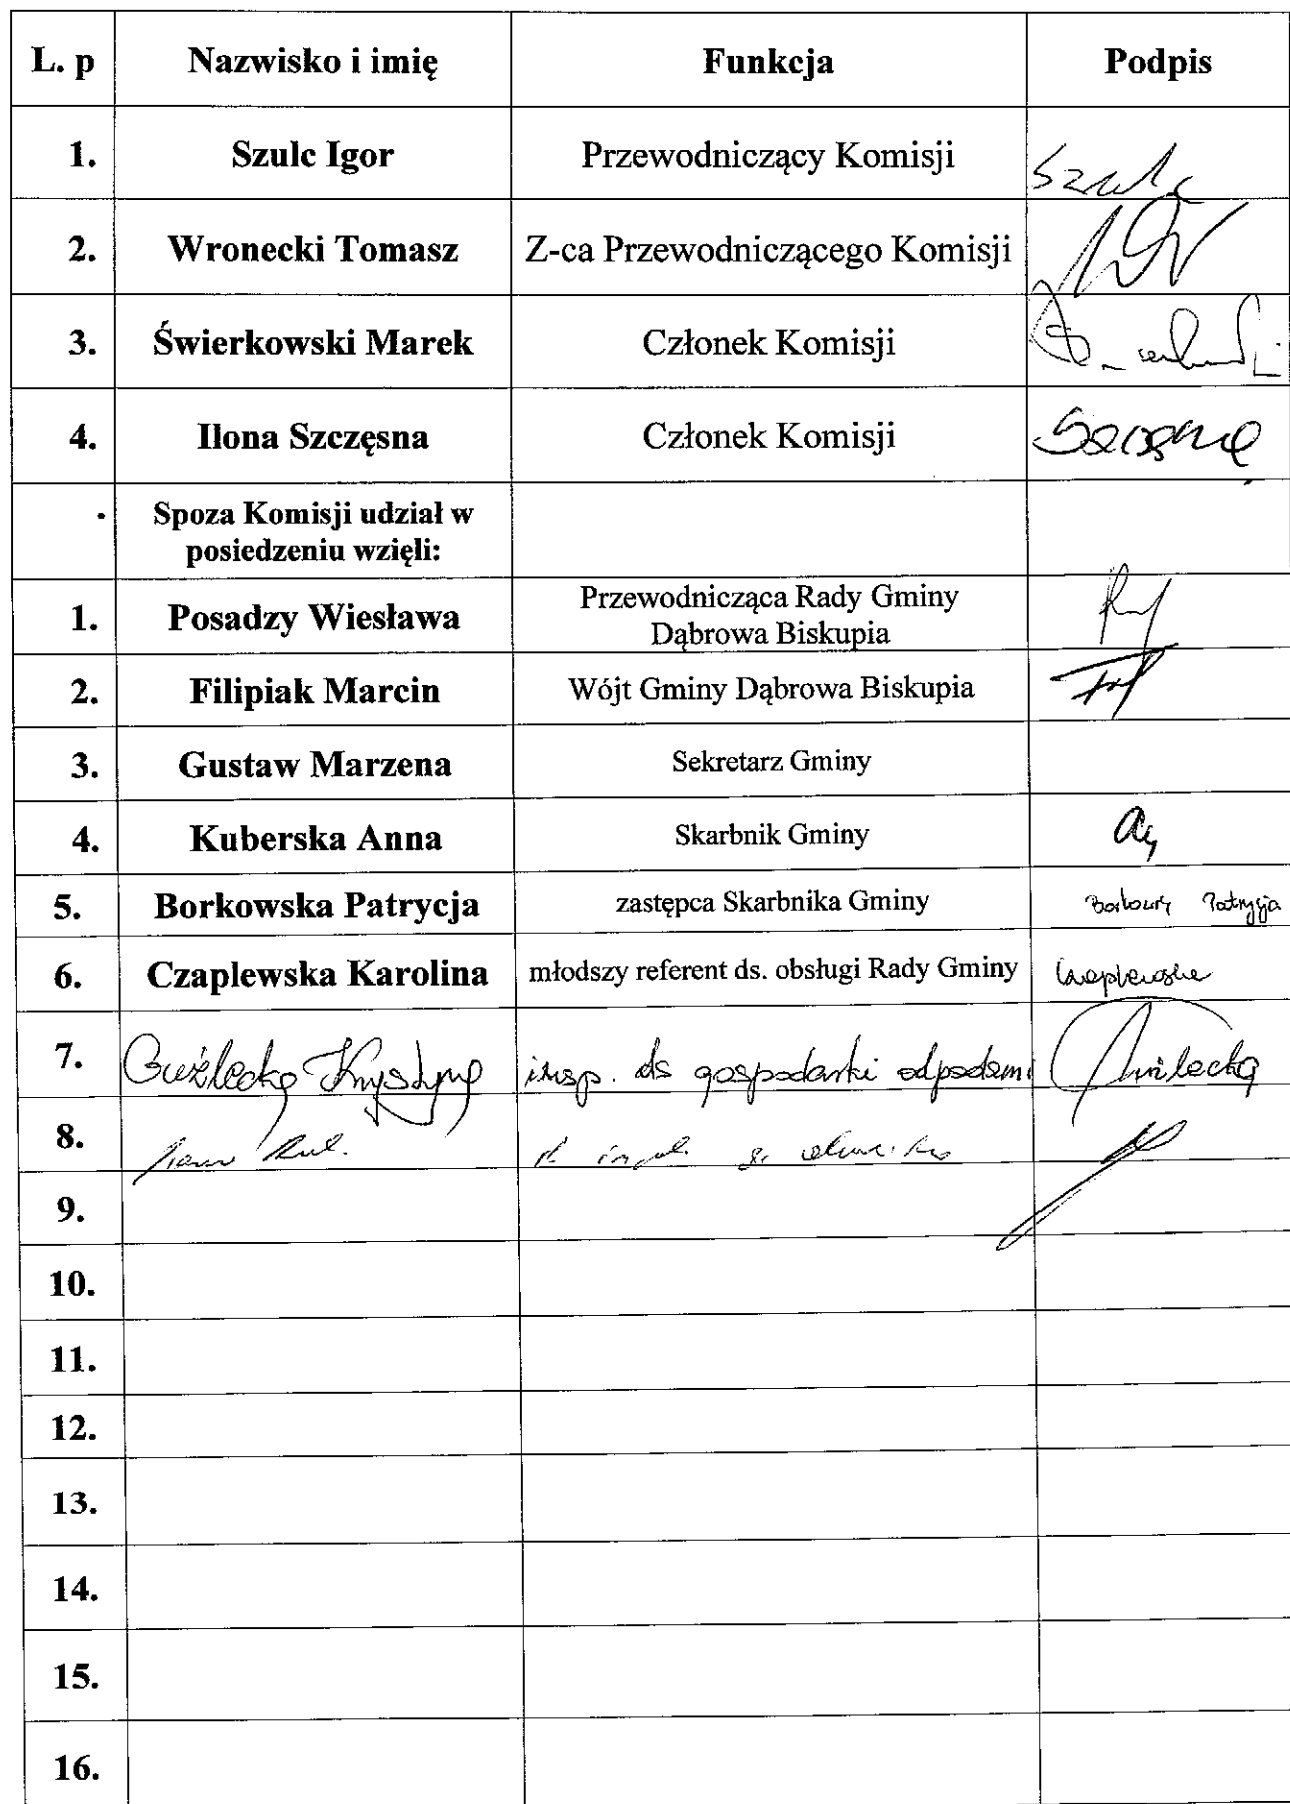 L. p Nazwisko i imię Funkcja Podpis
1. Szulc Igor Przewodniczący Komisji Szulc
2. Wronecki Tomasz Z-ca Przewodniczącego Komisji
3. Świerkowski Marek Członek Komisji
4. Ilona Szczęsna Członek Komisji
Spoza Komisji udział w
posiedzeniu wzięli:
1. Posadzy Wiesława Przewodnicząca Rady Gminy
Dąbrowa Biskupia
2. Filipiak Marcin Wójt Gminy Dąbrowa Biskupia
3. Gustaw Marzena Sekretarz Gminy
4. Kuberska Anna Skarbnik Gminy
5. Borkowska Patrycja zastępca Skarbnika Gminy Patrycja
6. Czaplewska Karolina młodszy referent ds. obsługi Rady Gminy Czaplewska
7. Krystyna insp. ds gospodarki odpadami
8.
9.
10.
11.
12.
13.
14.
15.
16.